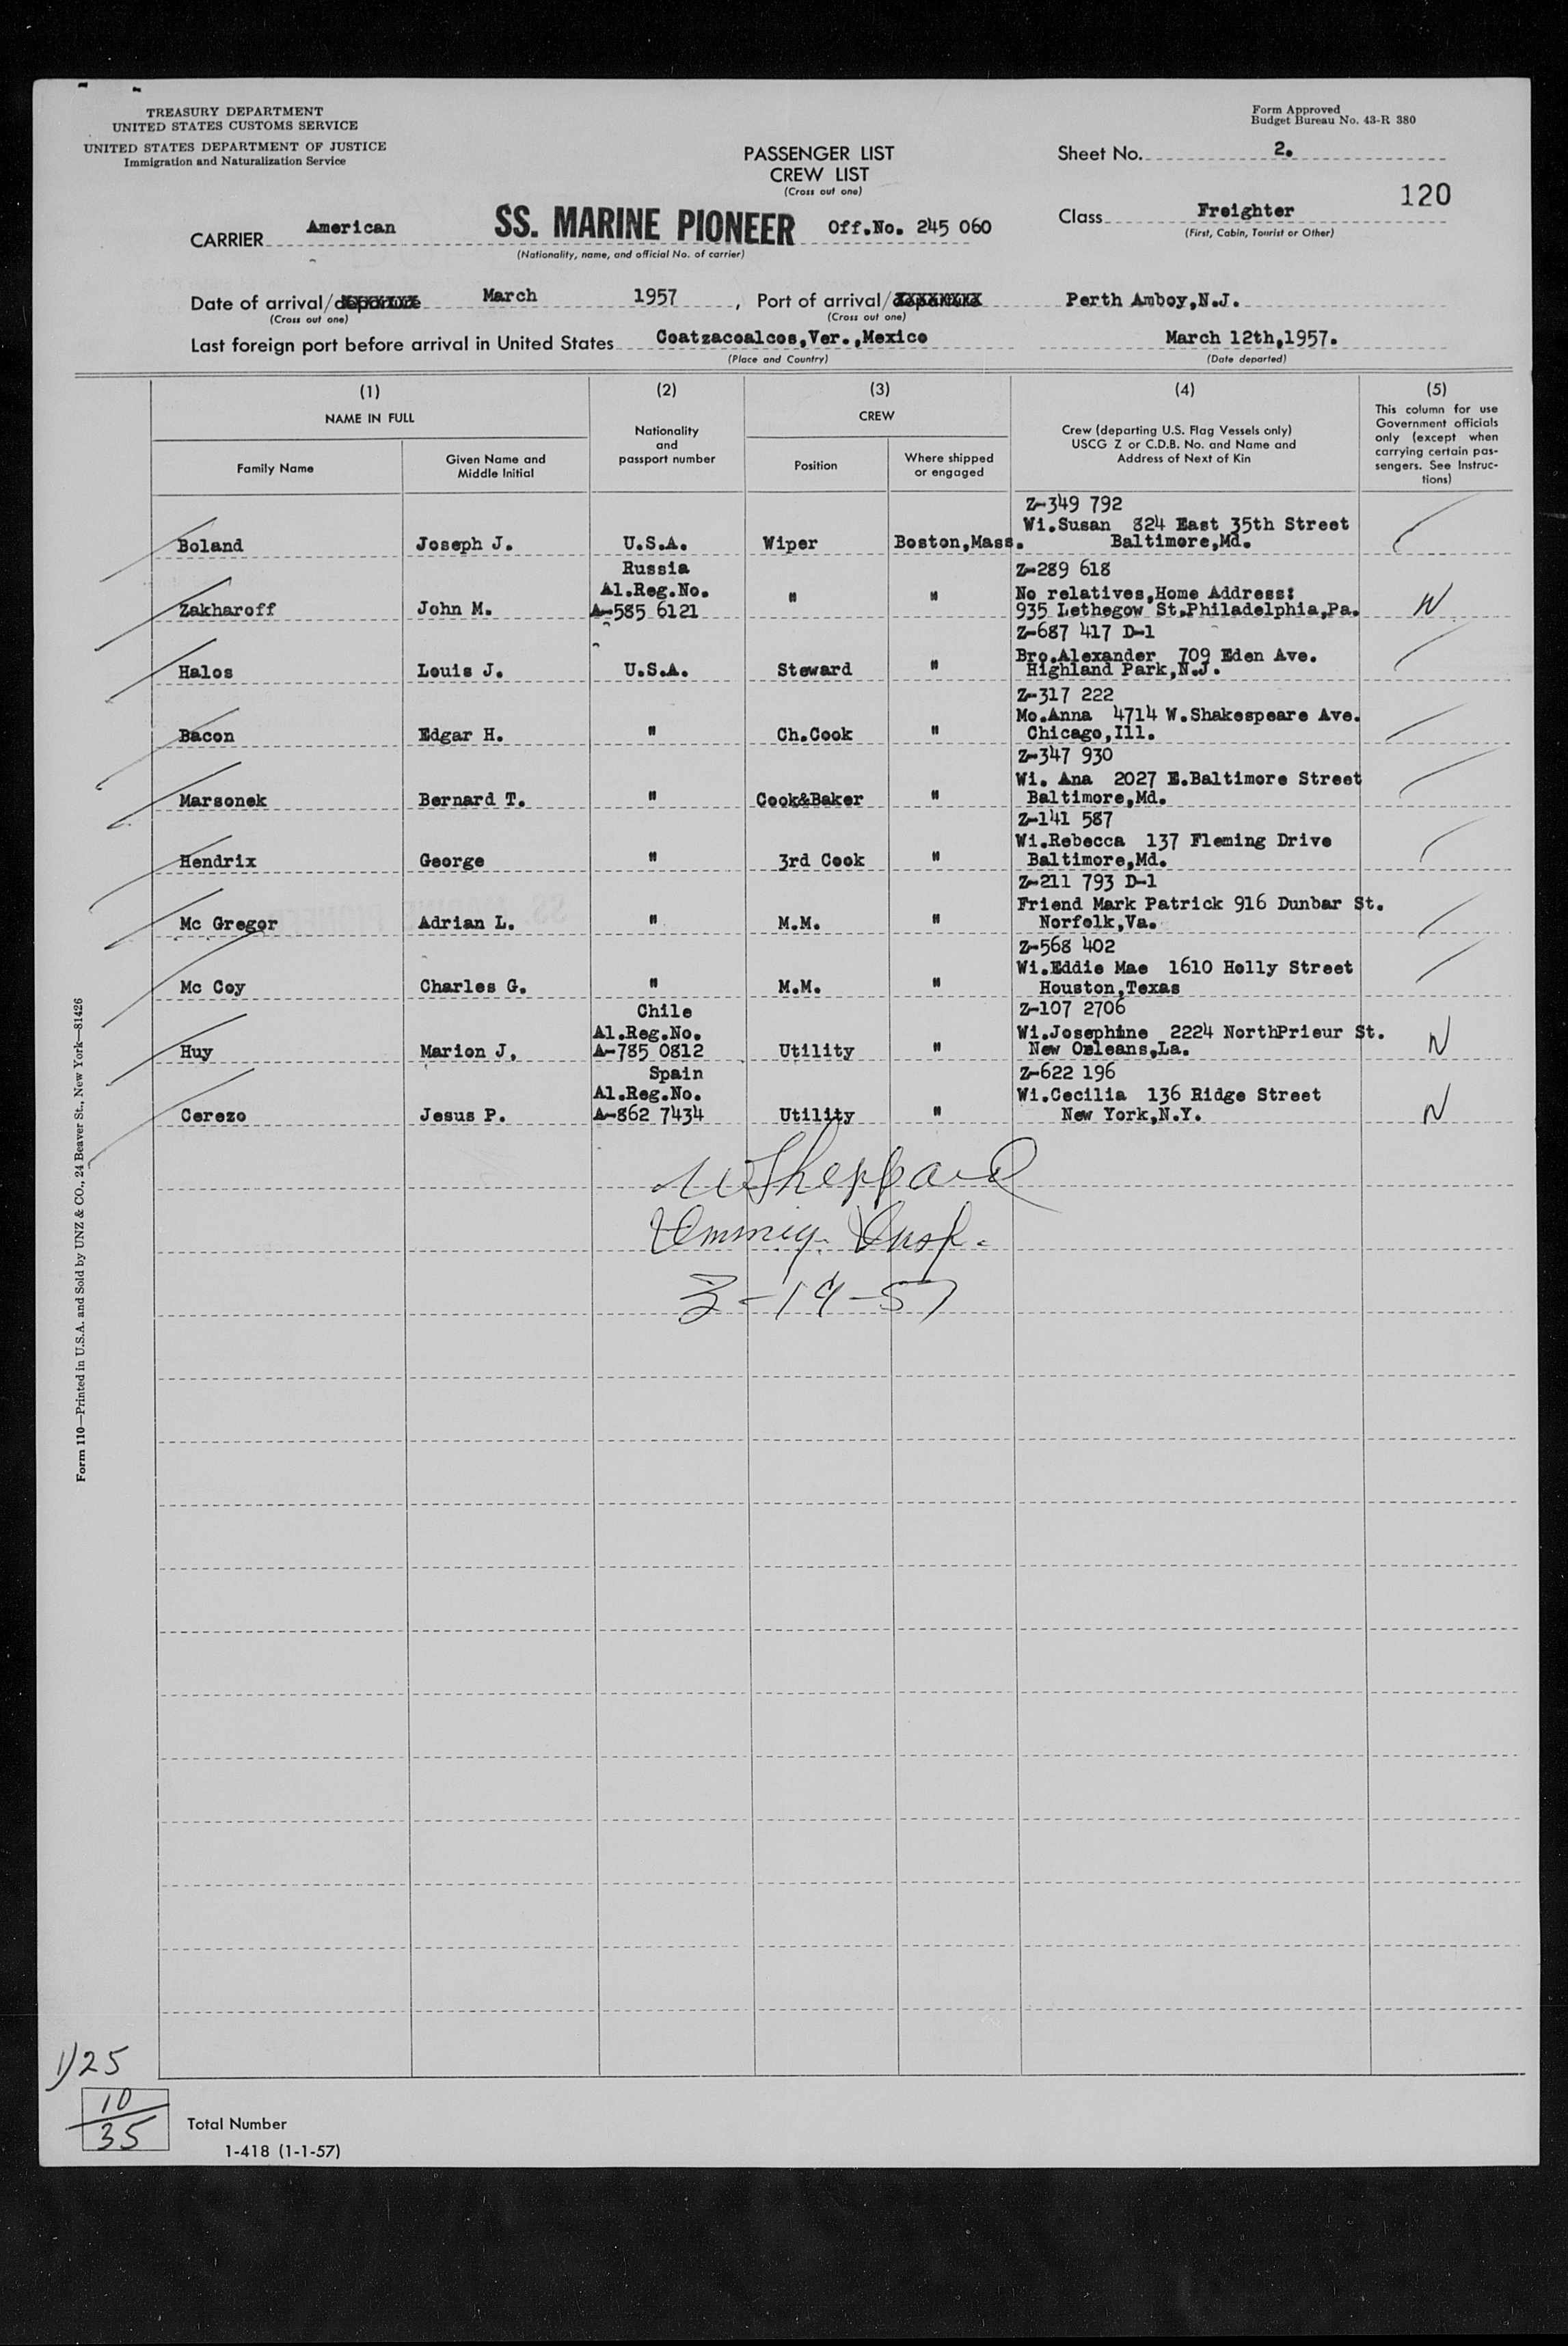 TREASURY DEPARTMENT
UNITED STATES CUSTOMS SERVICE
UNITED STATES DEPARTMENT OF JUSTICE
Immigration and Naturalization Service
Form Approved
Budget Bureau No. 43-R 380
PASSENGER LIST
CREW LIST
(Cross out one)
Sheet No. 2.
120
CARRIER American SS. MARINE PIONEER Off.No. 245 060
(Nationality, name, and official No. of carrier)
Class Freighter
(First, Cabin, Tourist or Other)
Date of arrival/departure March 1957, Port of arrival/departure Perth Amboy,N.J.
(Cross out one) (Cross out one)
Last foreign port before arrival in United States Coatzacoalcos,Ver.,Mexico March 12th,1957.
(Place and Country) (Date departed)
(1) (2) (3) (4) (5)
NAME IN FULL
Family Name
Given Name and
Middle Initial
Nationality
and
passport number
CREW
Position
Where shipped
or engaged
Crew (departing U.S. Flag Vessels only)
USCG Z or C.D.B. No. and Name and
Address of Next of Kin
This column for use
Government officials
only (except when
carrying certain pas-
sengers. See Instruc-
tions)
Z-349 792
Wi.Susan 824 East 35th Street
Boland Joseph J. U.S.A. Wiper Boston,Mass. Baltimore,Md.
Russia Z-289 618
Al.Reg.No. No relatives,Home Address:
Zakharoff John M. A-585 6121 " " 935 Lethegow St.Philadelphia,Pa. N
Z-687 417 D-1
Bro.Alexander 709 Eden Ave.
Halos Louis J. U.S.A. Steward " Highland Park,N.J.
Z-317 222
Mo.Anna 4714 W.Shakespeare Ave.
Bacon Edgar H. " Ch.Cook " Chicago,Ill.
Z-347 930
Wi. Ana 2027 E.Baltimore Street
Marsonek Bernard T. " Cook&Baker " Baltimore,Md.
Z-141 587
Wi.Rebecca 137 Fleming Drive
Hendrix George " 3rd Cook " Baltimore,Md.
Z-211 793 D-1
Friend Mark Patrick 916 Dunbar St.
Mc Gregor Adrian L. " M.M. " Norfolk,Va.
Z-568 402
Wi.Eddie Mae 1610 Holly Street
Mc Coy Charles G. " M.M. " Houston,Texas
Chile Z-107 2706
Al.Reg.No. Wi.Josephine 2224 NorthPrieur St.
Huy Marion J. A-785 0812 Utility " New Orleans,La. N
Spain Z-622 196
Al.Reg.No. Wi.Cecilia 136 Ridge Street
Cerezo Jesus P. A-862 7434 Utility " New York,N.Y. N
Sheppard
Immig. Insp.
3-19-57
Form 110—Printed in U.S.A. and Sold by UNZ & CO., 24 Beaver St., New York—81426
1)25
10
35
Total Number
1-418 (1-1-57)